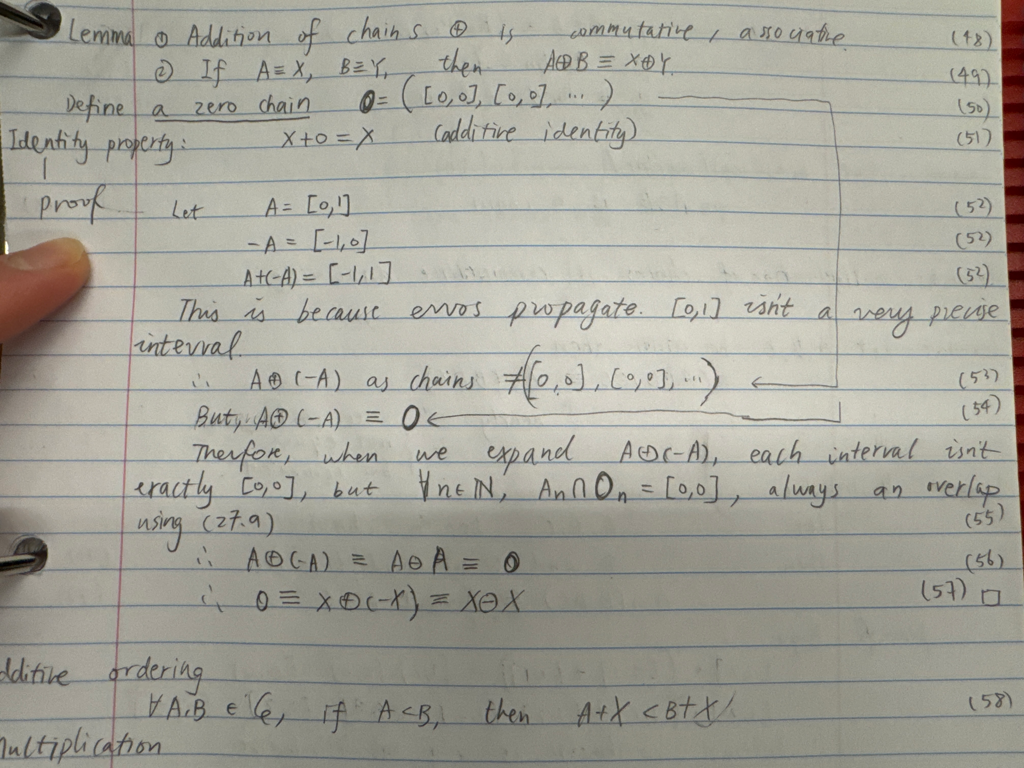 Lemma ① Addition of chains ⊕ is commutative, associative. (48)
② If A≡X, B≡Y, then A⊕B ≡ X⊕Y. (49)
Define a zero chain 0=([0,0],[0,0],...) (50)
Identity property: X+0=X (additive identity) (51)
proof Let A=[0,1] (52)
-A=[-1,0] (52)
A+(-A)=[-1,1] (52)
This is because erros propagate. [0,1] isn't a very precise
interval.
∴ A⊕(-A) as chains ≠([0,0],[0,0],...) (53)
But, A⊕(-A) ≡ 0 (54)
Therfore, when we expand A⊕(-A), each interval isn't
exactly [0,0], but ∀n∈ℕ, An∩On=[0,0], always an overlap
using (27.9) (55)
∴ A⊕(-A) ≡ A⊖A ≡ 0 (56)
∴ 0 ≡ X⊕(-X) ≡ X⊖X (57) □
dditive ordering
∀A,B ∈ , if A<B, then A+X<B+X (58)
multiplication